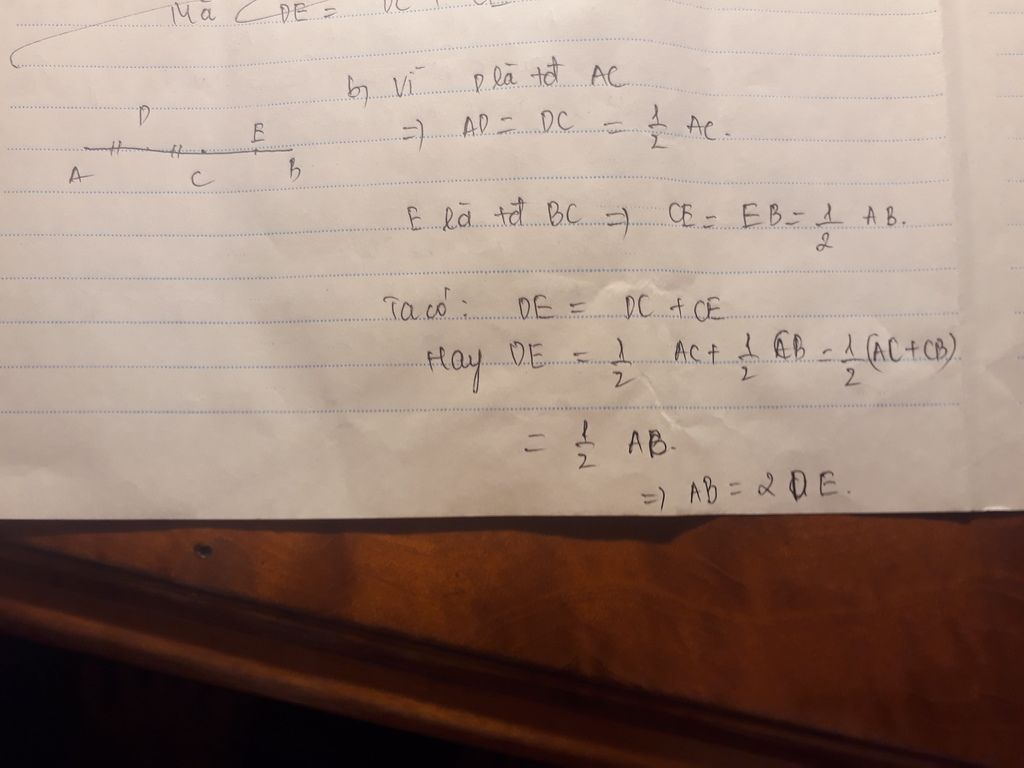 Mà DE = DC + CE
b, Vì D là tđ AC
D
=) AD = DC = 1/2 AC.
E
A C B
E là tđ BC =) CE = EB = 1/2 AB.
Ta có: DE = DC + CE
Hay DE = 1/2 AC + 1/2 CB = 1/2 (AC + CB)
= 1/2 AB.
=) AB = 2 DE.